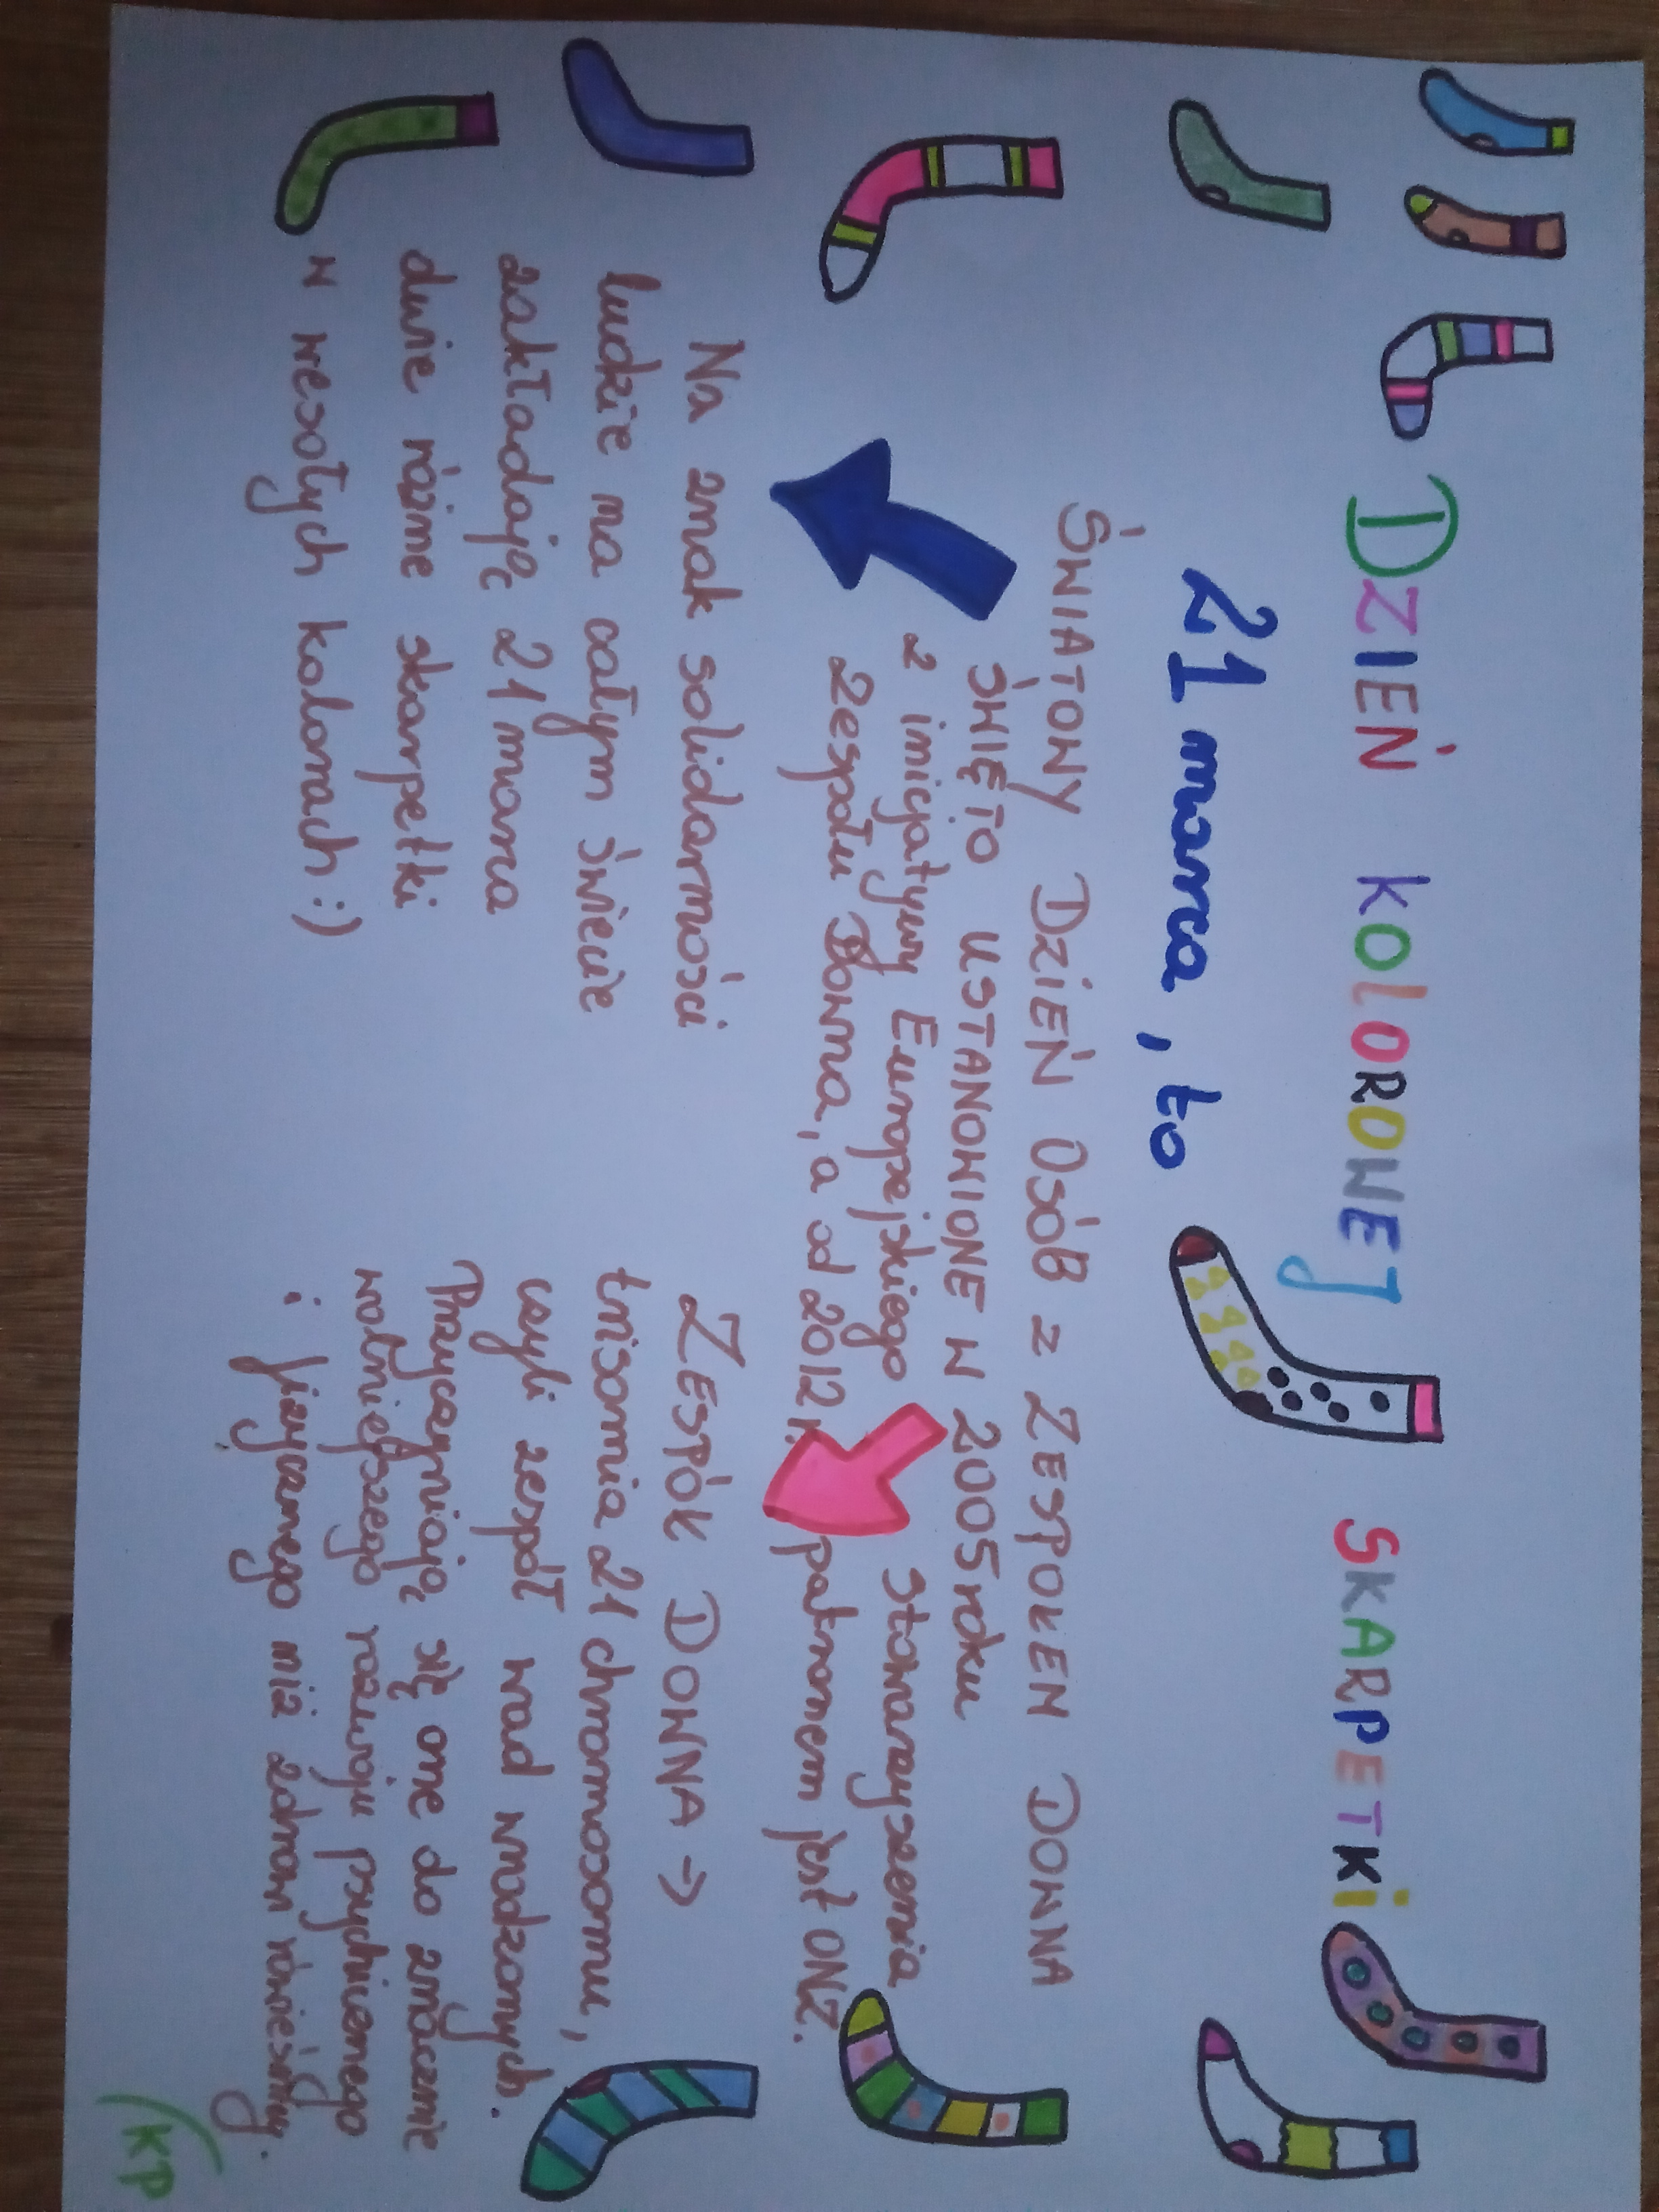 DZIEŃ KOLOROWEJ SKARPETKi
21 marca, to
ŚWIATOWY DZIEŃ OSÓB z ZESPOŁEM DOWNA
ŚWIĘTO USTANOWIONE W 2005 roku
z inicjatywy Europejskiego Stowarzyszenia
Zespołu Downa, a od 2012 r. patronem jest ONZ.
Na znak solidarności
ludzie na całym świecie
zakładają 21 marca
dwie różne skarpetki
w wesołych kolorach :)
ZESPÓŁ DOWNA →
trisomia 21 chromosomu,
czyli zespół wad wrodzonych.
Przyczyniają się one do znacznie
wolniejszego rozwoju psychicznego
i fizycznego niż zdrowi rówieśnicy.
KP